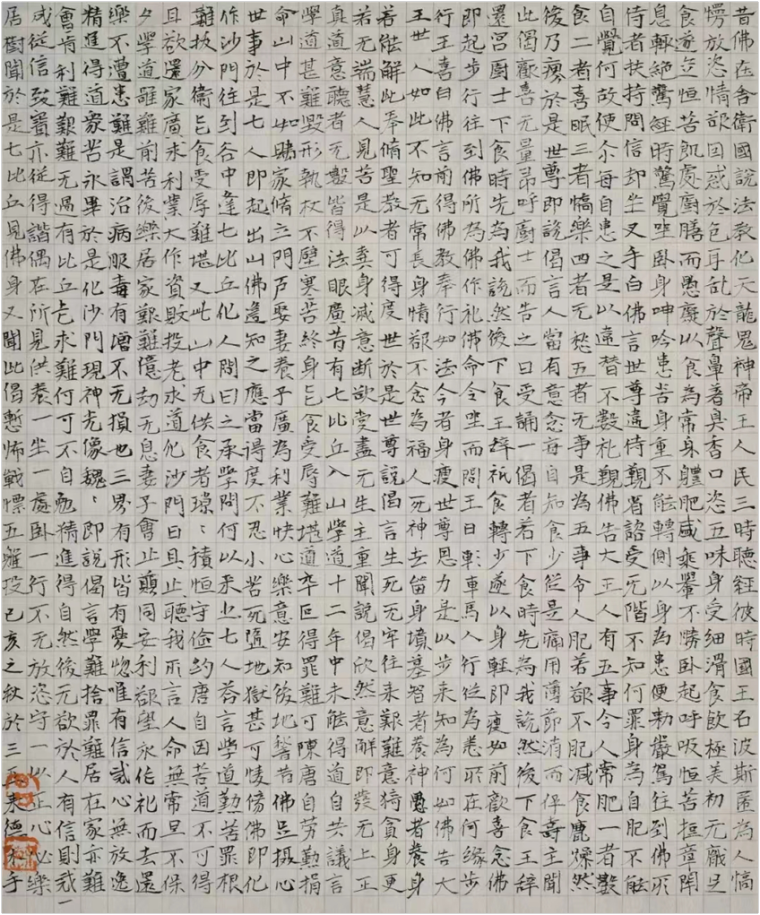 昔佛在舍衛國說法教化天龍鬼神帝王人民三時聽經彼時國王名波斯匿為人憍
愣放恣情欲因惑於色耳亂於聲鼻著臭香口恣五味身受細滑食飲極美初无厭足
食遂並恒苦飢處廚膳而愚癡以食為常身軆肥咸乘轝不勝臥起呼吸恒苦短章閇
息輒絕驚經時驚覺坐臥身呻吟患苦身重不能轉側以身為患便勅嚴駕往到佛所
侍者扶持問信却坐叉手白佛言世尊違侍覲省諮受无階不知何罪身為自肥不能
自覺何故使尒每自患之是以違替不數礼覲佛告大王人有五事令人常肥一者數
食二者喜眠三者憍樂四者无愁五者无事是為五事令人肥若欲不肥減食麁燥然
後乃瘦於是世尊即說偈言人當有意念每自知食少從是痛用薄節消而保壽王聞
此偈歡喜无量即呼廚士而告之曰受誦一偈者若下食時先為我說然後下食王辭
還宮廚士下食時先為我說然後下食王輒祇食轉少遂以身輕即瘦如前歡喜念佛
即起步行往到佛所為佛作礼佛命令坐而問王曰車馬人行從為卷所在何緣步
行王喜白佛言前得佛教奉行如法今者身瘦世尊恩力是以步来知為何如佛告大
王世人如此不知无常長身情欲不念為福人死神去留身墳墓智者養神愚者養身
若能解此奉脩聖教者可得度世於是世尊說偈言生死无牢往来艱難意猗貪身更
若无端慧人見苦是以棄身減意断欲受盡无生主重聞說偈欣然意解即發无上正
真道意聽者无數皆得法眼廣昔有七比丘入山學道十二年中未能得道自共議言
學道甚難毀形執杖不壁寒苦終身乞食受辱難堪道卒叵得罪難可陳唐自勞勤捐
命山中不如歸家脩立門戶娶妻養子廣為利業快心樂意安知後地響昔佛足攝心
世事於是七人即起出山佛遙知之應當得度不忍小苦死墮地獄甚可悽傍佛即化
作沙門往到谷中逢七比丘化人問曰之承學問何以来㞢七人荅言學道勤苦罪根
難拔分衛乞食受辱難堪又此山中无供食者璟〻積恒守儉約唐自因苦道不可得
且欲還家廣求利業大作資敗投老求道化沙門曰且止聽我所言人命無常旦不保
夕學道雖難前苦後樂居家艱難億劫无息妻子會止同安利欲坐永作礼而去還
樂不遭患難是謂治病服毒有增不无損也三界有形皆有憂惚唯有信或心無放逸
精進得道衆苦永畢於是化沙門現神光像巍〻即說偈言學難捨罪難居在家亦難
會肯利難艱難无過有比丘乞求難何可不自勉猜進得自然後无欲於人有信則我一
成從信致寶亦從得諧偶在所見供養一坐一處臥一行不无放恣守一以正心心樂
居樹聞於是七比丘見佛身又聞此偈慙怖戰慄五體投己亥之秋於三